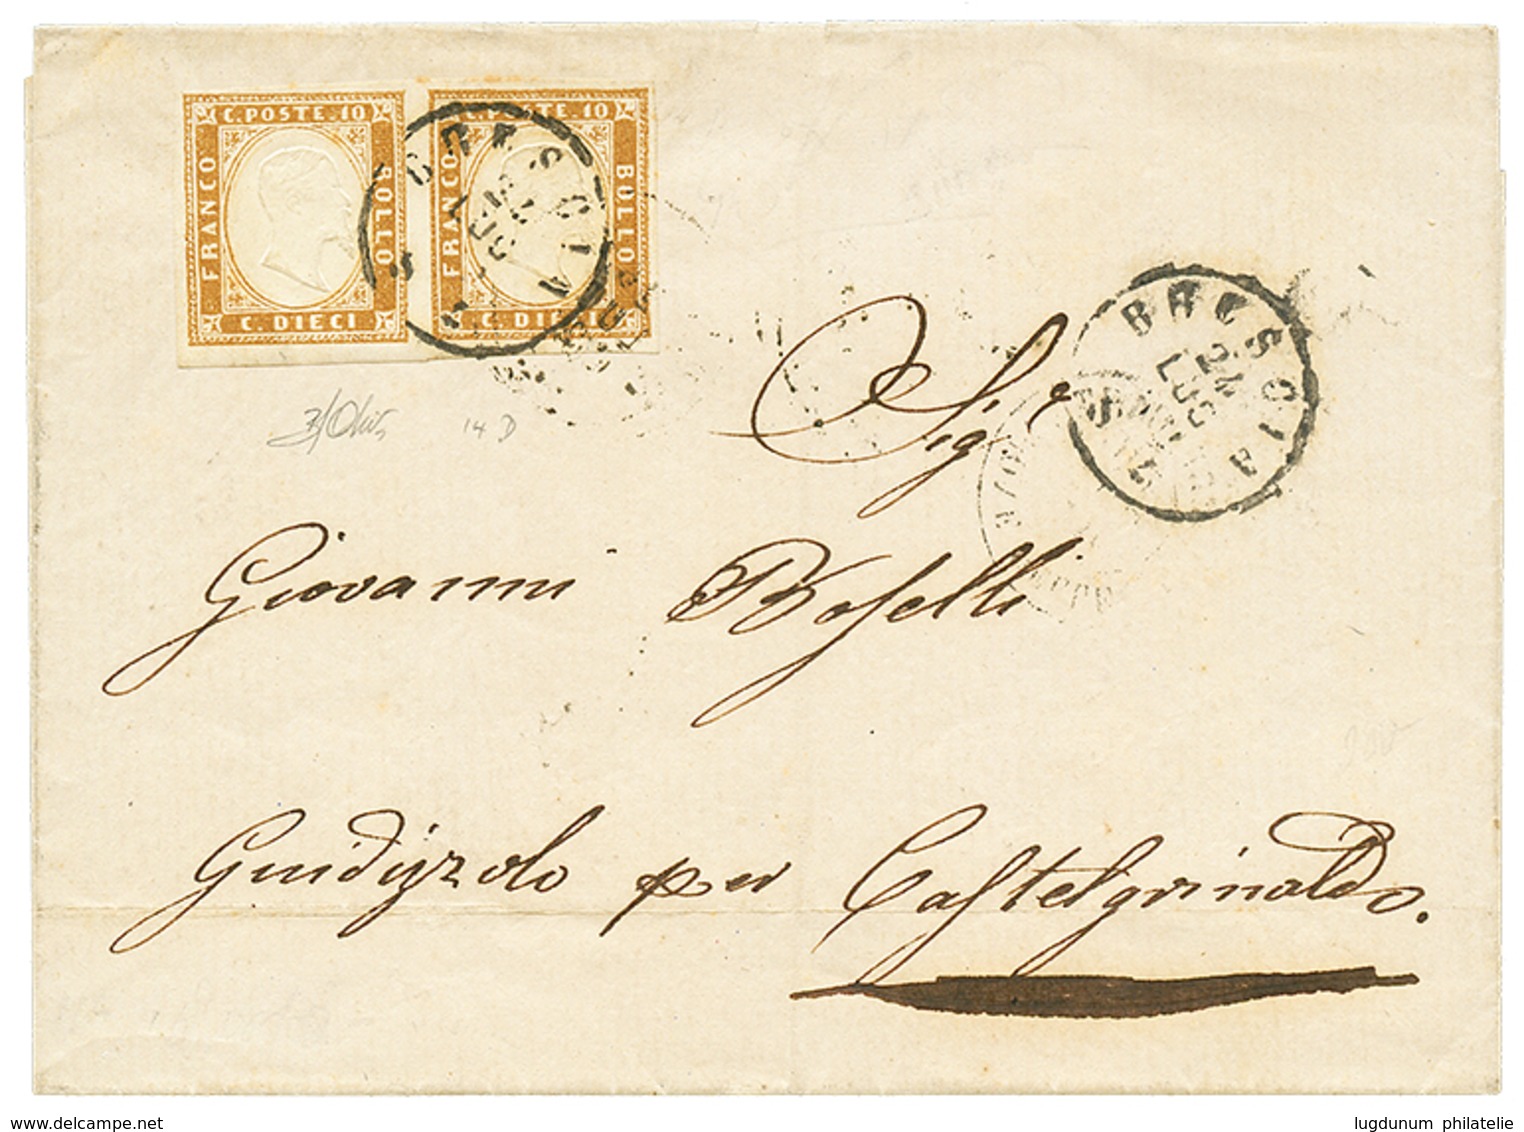 C. POSTE. 10
FRANCO
BOLLO
C. DIECI
C. POSTE. 10
FRANCO
BOLLO
C. DIECI
BRESCIA
14 D
BRESCIA
24
LUG
Sig.r
Giovanni Boselli
Guidizzolo per Castelgrimaldo.
www.delcampe.net
lugdunum philatelie